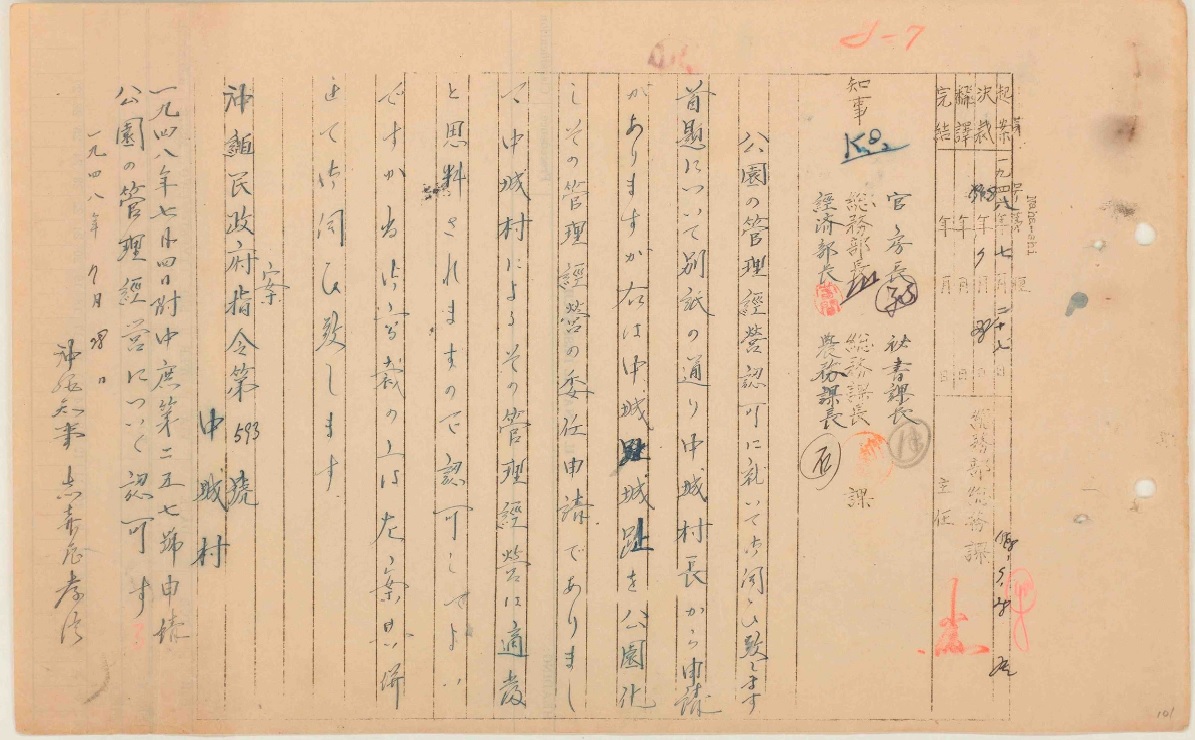 J-7
起案 一九四八年七月二十七日
決裁 年 月 日
翻譯 年 月 日
完結 年 月 日
總務部總務課
主任
知事 K.S.
官房長 祕書課長
総務部長 総務課長 課
經済部長 農務課長
公園の管理經營認可に就いて御伺ひ致します
首題について別紙の通り中城村長から申請
がありますが右は中城城趾を公園化
しその管理經營の委任申請でありまし
て中城村によるその管理經營は適当
と思料されますので認可してよい
ですか尚御高裁の上は左案思併
せて御伺ひ致します
案
沖繩民政府指令第593號
中城村
一九四八年七月四日附中庶第二五七號申請
公園の管理經営について認可す
一九四八年 月 日
沖縄知事 志喜屋孝信
101